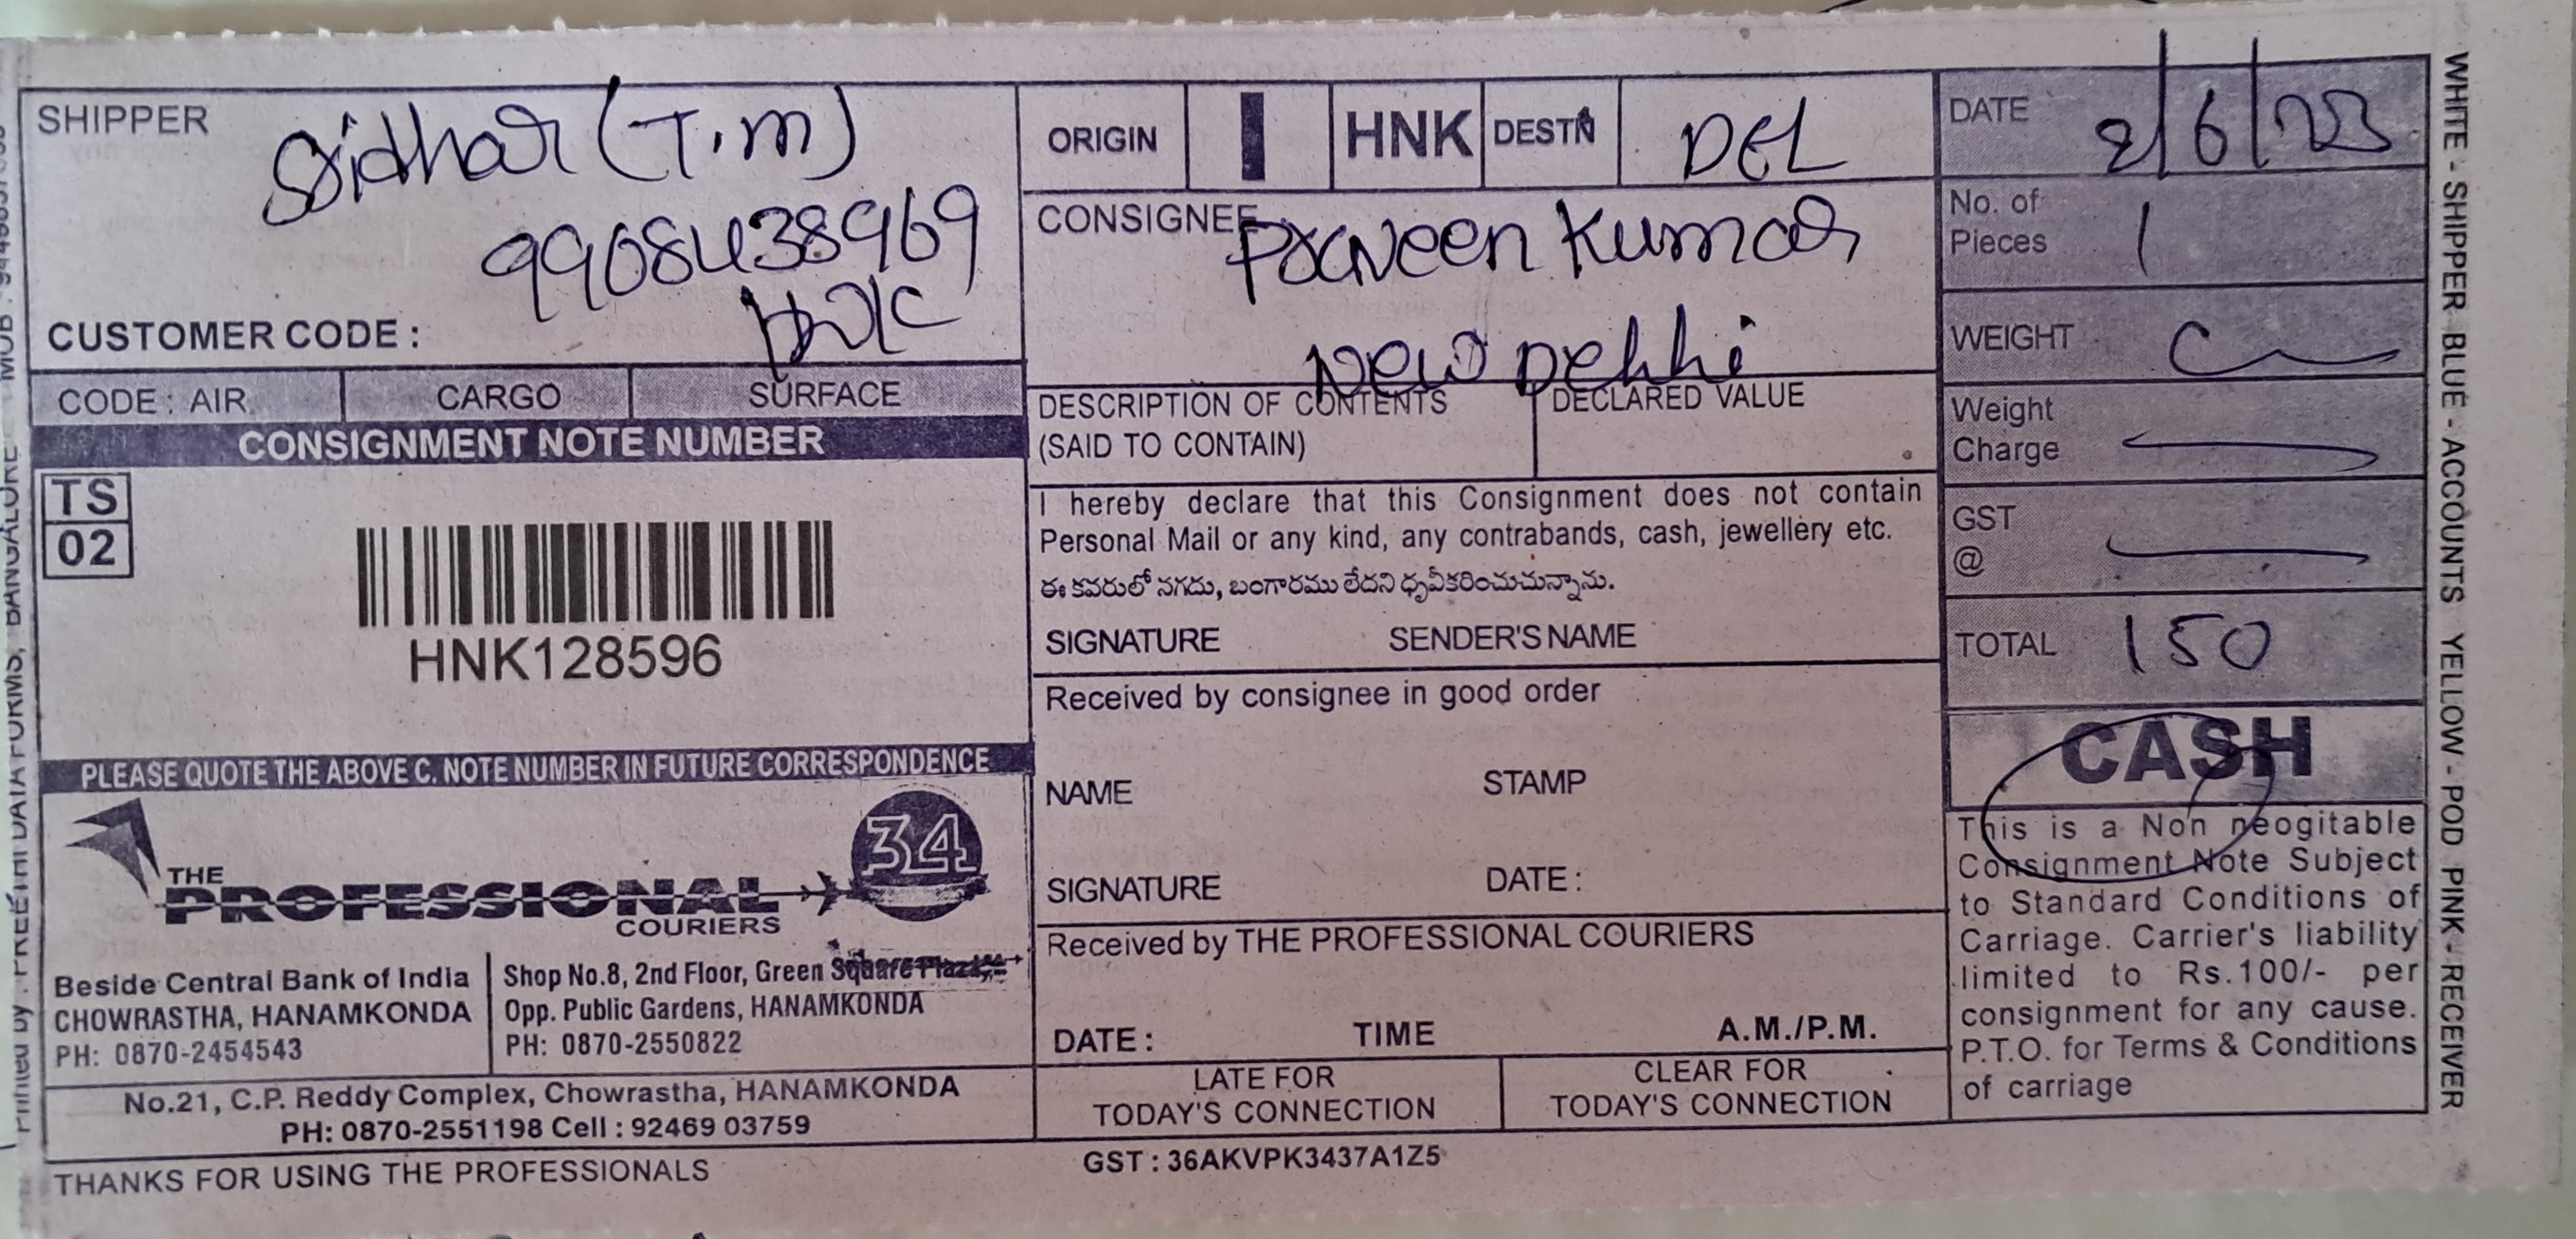 SHIPPER
Sridhar (T.M)
9908438969
HNK
CUSTOMER CODE :
CODE : AIR
CARGO
SURFACE
CONSIGNMENT NOTE NUMBER
TS
02
HNK128596
PLEASE QUOTE THE ABOVE C. NOTE NUMBER IN FUTURE CORRESPONDENCE
34
THE
PROFESSIONAL
COURIERS
Beside Central Bank of India
CHOWRASTHA, HANAMKONDA
PH: 0870-2454543
Shop No.8, 2nd Floor, Green Square Plaza,
Opp. Public Gardens, HANAMKONDA
PH: 0870-2550822
No.21, C.P. Reddy Complex, Chowrastha, HANAMKONDA
PH: 0870-2551198 Cell : 92469 03759
THANKS FOR USING THE PROFESSIONALS
ORIGIN
I
HNK
DESTN
DEL
CONSIGNEE
Praveen Kumar
New Delhi
DESCRIPTION OF CONTENTS
(SAID TO CONTAIN)
DECLARED VALUE
I hereby declare that this Consignment does not contain
Personal Mail or any kind, any contrabands, cash, jewellery etc.
ఈ కవరులో నగదు, బంగారము లేదని ధృవీకరించుచున్నాను.
SIGNATURE SENDER'S NAME
Received by consignee in good order
NAME STAMP
SIGNATURE DATE :
Received by THE PROFESSIONAL COURIERS
DATE : TIME A.M./P.M.
LATE FOR
TODAY'S CONNECTION
CLEAR FOR
TODAY'S CONNECTION
GST : 36AKVPK3437A1Z5
DATE 2/6/23
No. of
Pieces 1
WEIGHT
Weight
Charge
GST
@
TOTAL 150
CASH
This is a Non neogitable
Consignment Note Subject
to Standard Conditions of
Carriage. Carrier's liability
limited to Rs.100/- per
consignment for any cause.
P.T.O. for Terms & Conditions
of carriage
WHITE - SHIPPER BLUE - ACCOUNTS YELLOW - POD PINK - RECEIVER
Printed by : PREETHI DATA FORMS, BANGALORE MOB :